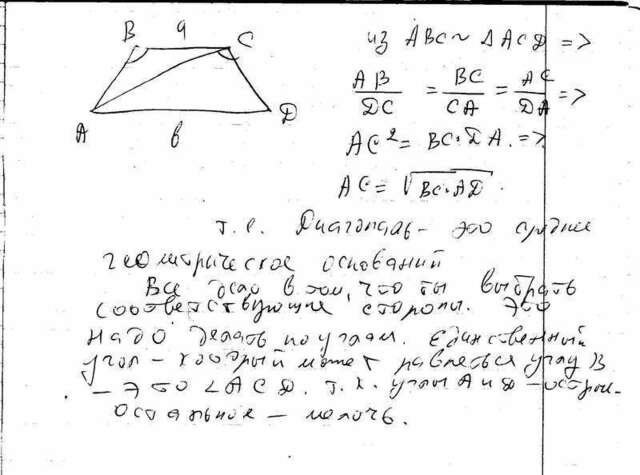 B a C
A b D
из ABC ~ ΔACD =>
AB/DC = BC/CA = AC/DA =>
AC² = BC·DA. =>
AC = √BC·AD.
т.е. Диагональ - это среднее
геометрическое оснований
Все дело в том, что ты выбрать
соответствующие стороны. Это
надо делать по углам. Единственный
угол - который может равняться углу B
- это ∠ACD. т.к. углы A и D - острые.
Остальное - мелочь.